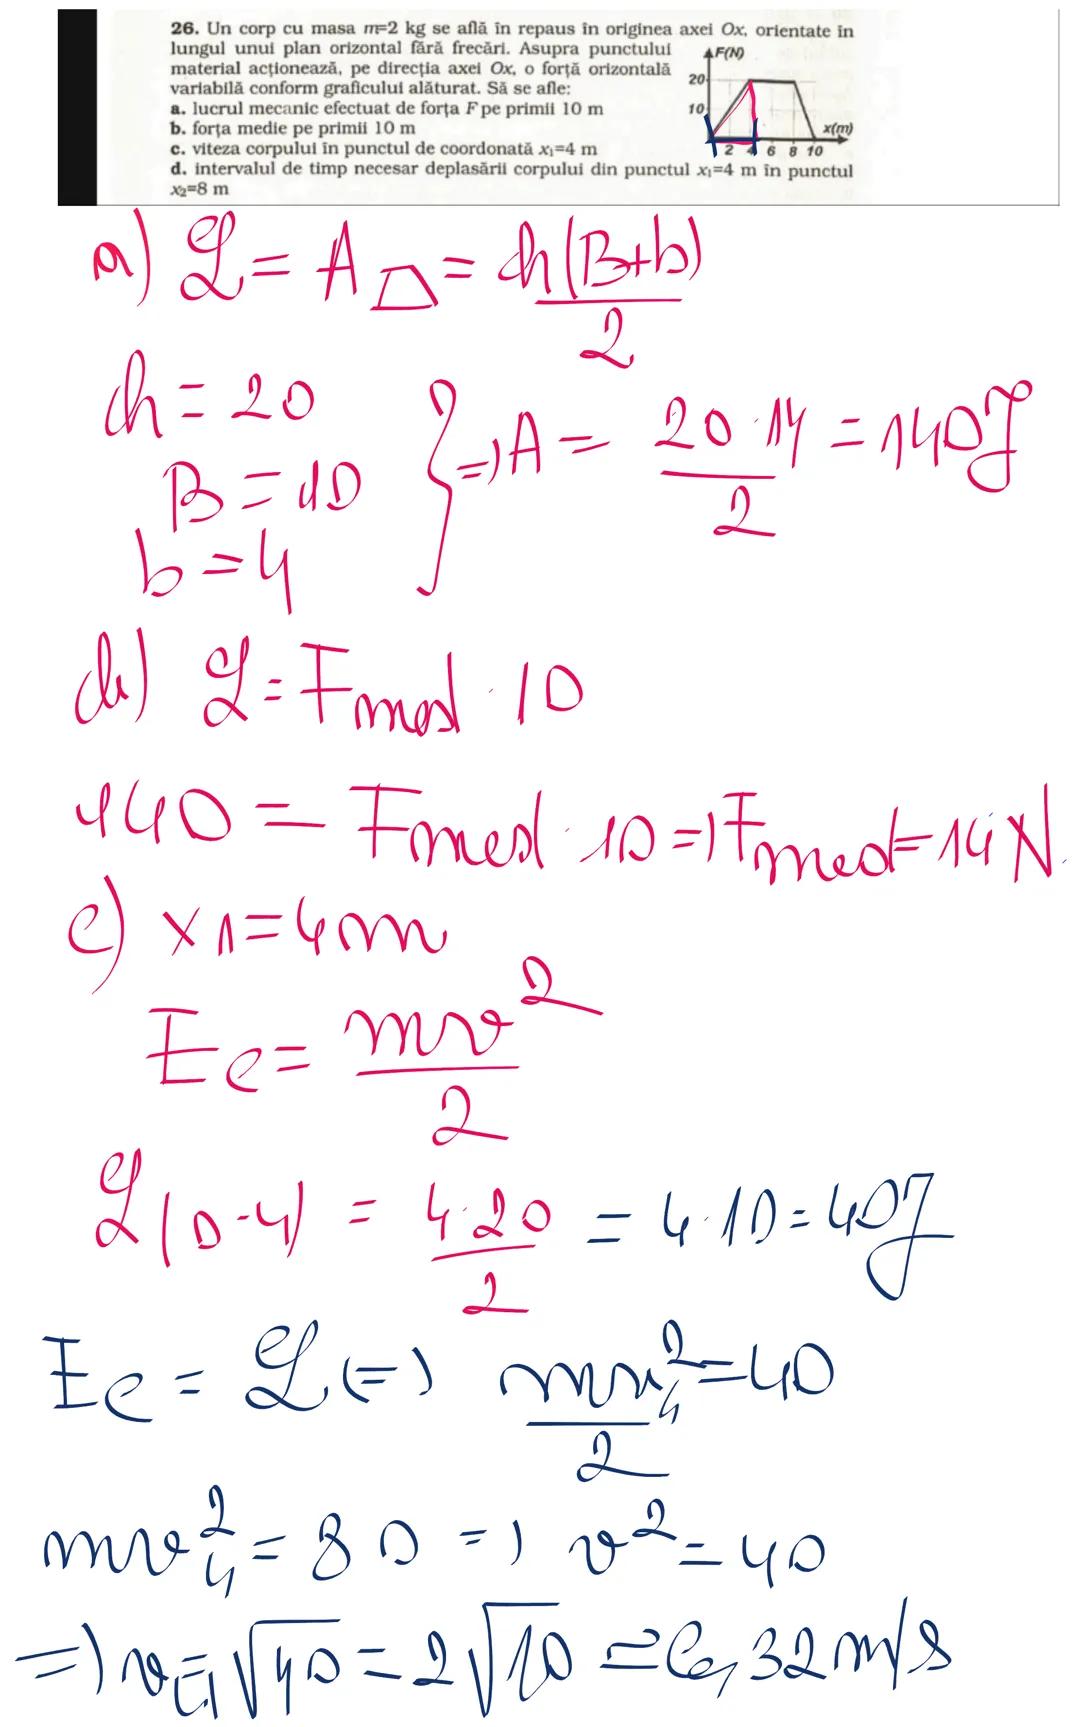 26. Un corp cu masa m=2 kg se află în repaus în originea axei Ox, orientate în
lungul unui plan orizontal fără frecări. Asupra punctului
material acționează, pe direcția axei Ox, o forță orizontală
variabilă conform graficului alăturat. Să se afle:
a. lucrul mecanic efectuat de forța F pe primii 10 m
b. forța medie pe primii 10 m
c. viteza corpului în punctul de coordonată x₁=4 m
d. intervalul de timp necesar deplasării corpului din punctul x₁=4 m în punctul
x₂=8 m
F(N)
20
10
x(m)
2 4 6 8 10
a) L = A = h(B+b)/2
h = 20
B = 10
b = 4
} => A = 20·14/2 = 140J
b) L = Fmed · 10
140 = Fmed · 10 => Fmed = 14 N
c) x1 = 4m
Ec = mv²/2
L(0-4) = 4·20/2 = 4·10 = 40J
Ec = L (=) mv₄²/2 = 40
mv₄² = 80 => v² = 40
=> v₄ = √40 = 2√10 = 6,32 m/s